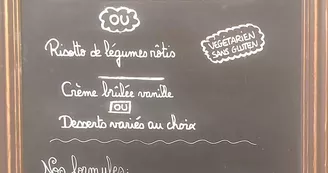 OU
Risotto de légumes rôtis
VEGETARIEN
SANS GLUTEN
Crème brûlée vanille
OU
Desserts variés au choix
Nos formules: